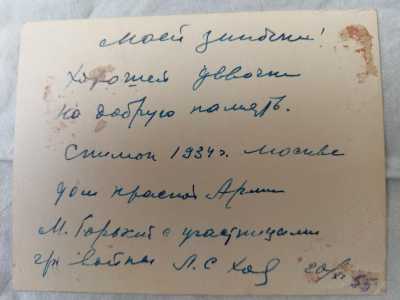 Моей Зинбочки!
Хорошей Девочки
на добрую память.
Снимок 1934 г. Москве
дом Красной Армии
М. Горький с участницами
гр. войны Л. С. 20/XI 55